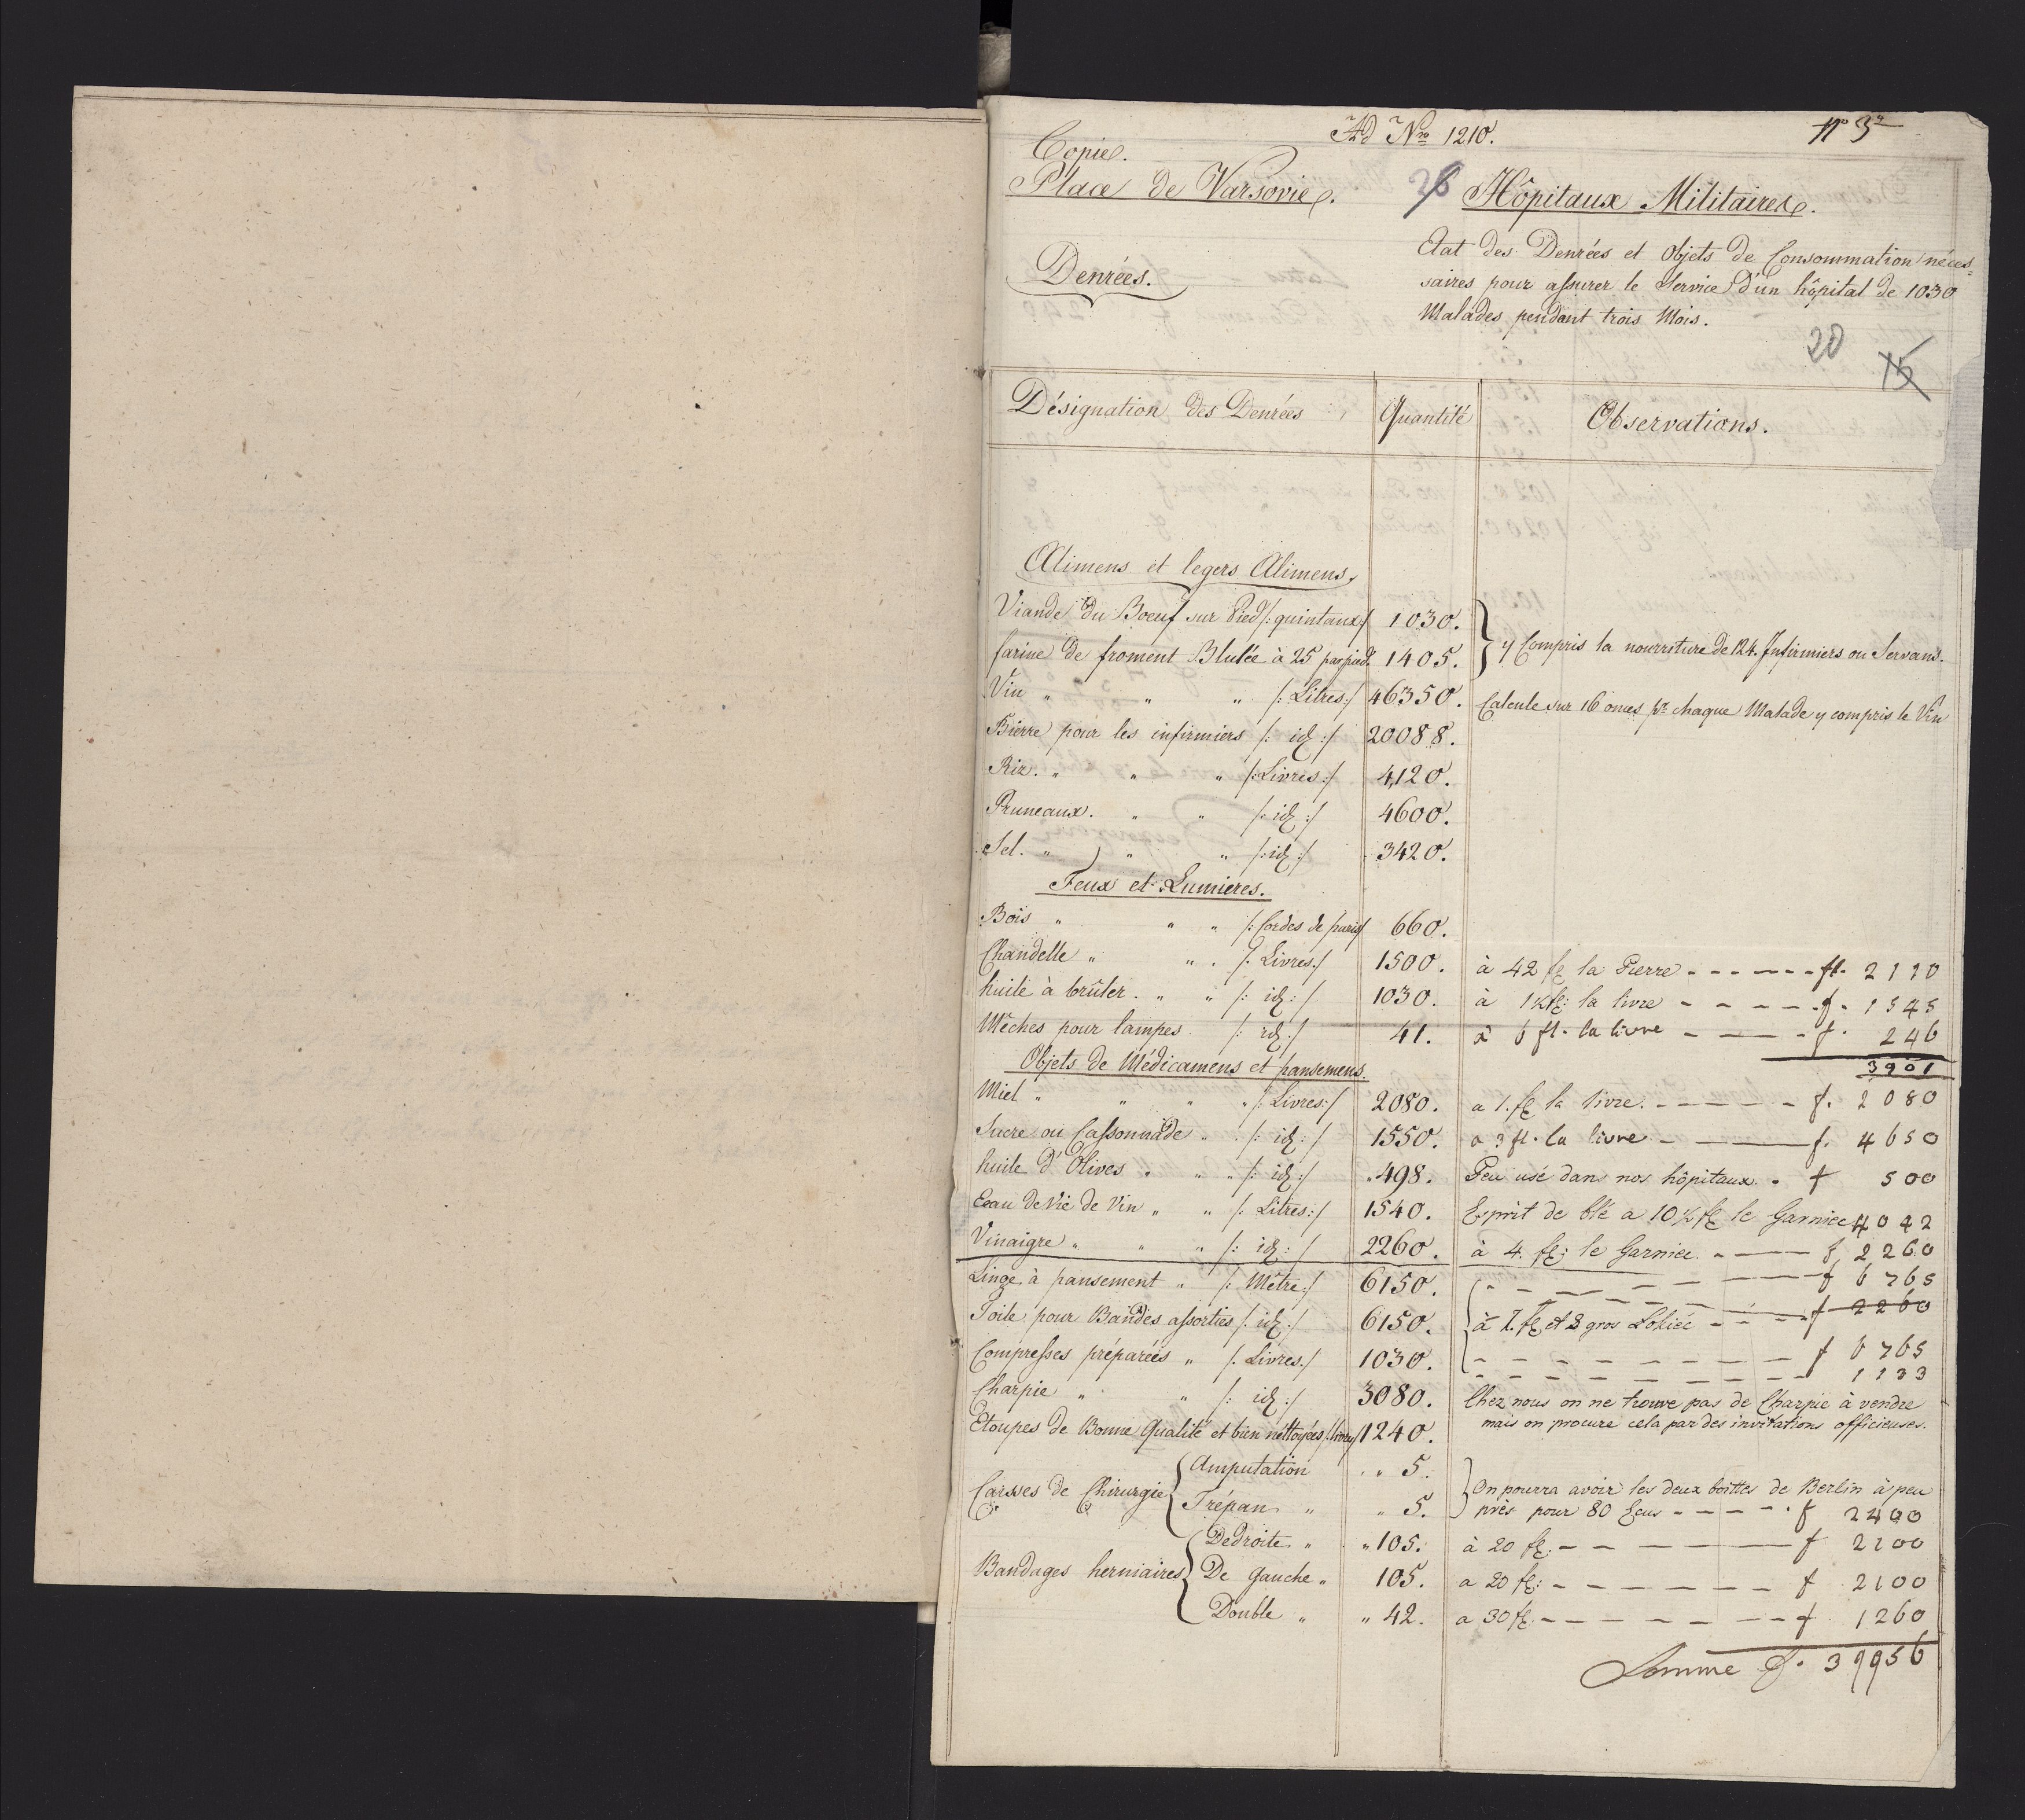 Ad Nro 1210.
nº 3º
Copie.
Place de Varsovie.
26 Hôpitaux Militaires.
Denrées.
Etat des Denrées et Objets de Consommation néces-
saires pour assurer le Service d'un hôpital de 1030
Malades pendant trois Mois.
20 15
Désignation des Denrées Quantité Observations.
Alimens et legers Alimens,
Viande du Boeuf sur Pied /: quintaux :/ 1030. y Compris la nourriture de 124. Infirmiers ou Servans.
farine de froment Blutée à 25 1405.
Vin " " " /: Litres :/ 46350. Calcule sur 16 onces pr chaque Malade y compris le Vin
Bierre pour les infirmiers /: id :/ 20088.
Riz. " " " /: Livres :/ 4120.
Pruneaux. " " /: id :/ 4600.
Sel. " " " /: id :/ 3420.
Feux et Lumieres.
Bois " " " /: Cordes de paris/ 660.
Chandelle " " . /: Livres./ 1500. à 42 fl la Pierre - - - - - - fl. 2110
huile à brûler. " " /: id: / 1030. à 1½ fl: la livre - - - - - f. 1545
Mêches pour lampes /: id :/ 41. à 6 fl. la livre - - - - f. 246
3901
Objets de Médicamens et pansemens.
Miel " " " " /: Livres :/ 2080. a 1. fl la livre. - - - - - f. 2080
Sucre ou Cassonnade " . /: id :/ 1550. a 3 fl. la livre - - - f. 4650
huile d'Olives " " " /: id :/ " 498. Peu usé dans nos hôpitaux. . f 500
Eeau de Vie de Vin " " /: Litres :/ 1540. Esprit de blé a 10½ fl le Garniec 4042
Vinaigre " " " /: id: / 2260. à 4. fl: le Garniec " - - f 2260
Linge à pansement " /: Mêtre :/ 6150. " - - - - - - f 6765
Toile pour Bandes assorties /: id :/ 6150. à 1. fl et 8 gros - - - f 2260
Compresses préparées " /: Livres./ 1030. - - - - - - - f 6765
- - - - - - - - 1133
Charpie " " /: id :/ 3080. Chez nous on ne trouve pas de Charpie à vendre
Etoupes de Bonne Qualité et bien nettoyées /:livres/ 1240. mais on procure cela par des invitations officieuses.
Caisses de Chirurgie { Amputation " " 5. On pourra avoir les deux boittes de Berlin à peu
Trépan " " 5. près pour 80 Ecus - - - - . f 2400
Bandages herniaires { De droite " " 105. à 20 fl. - - - - - f 2100
De gauche " 105. a 20 fl: - - - - - - - f 2100
Double " " 42. a 30 fl - - - - - - - f 1260
Somme f. 39956